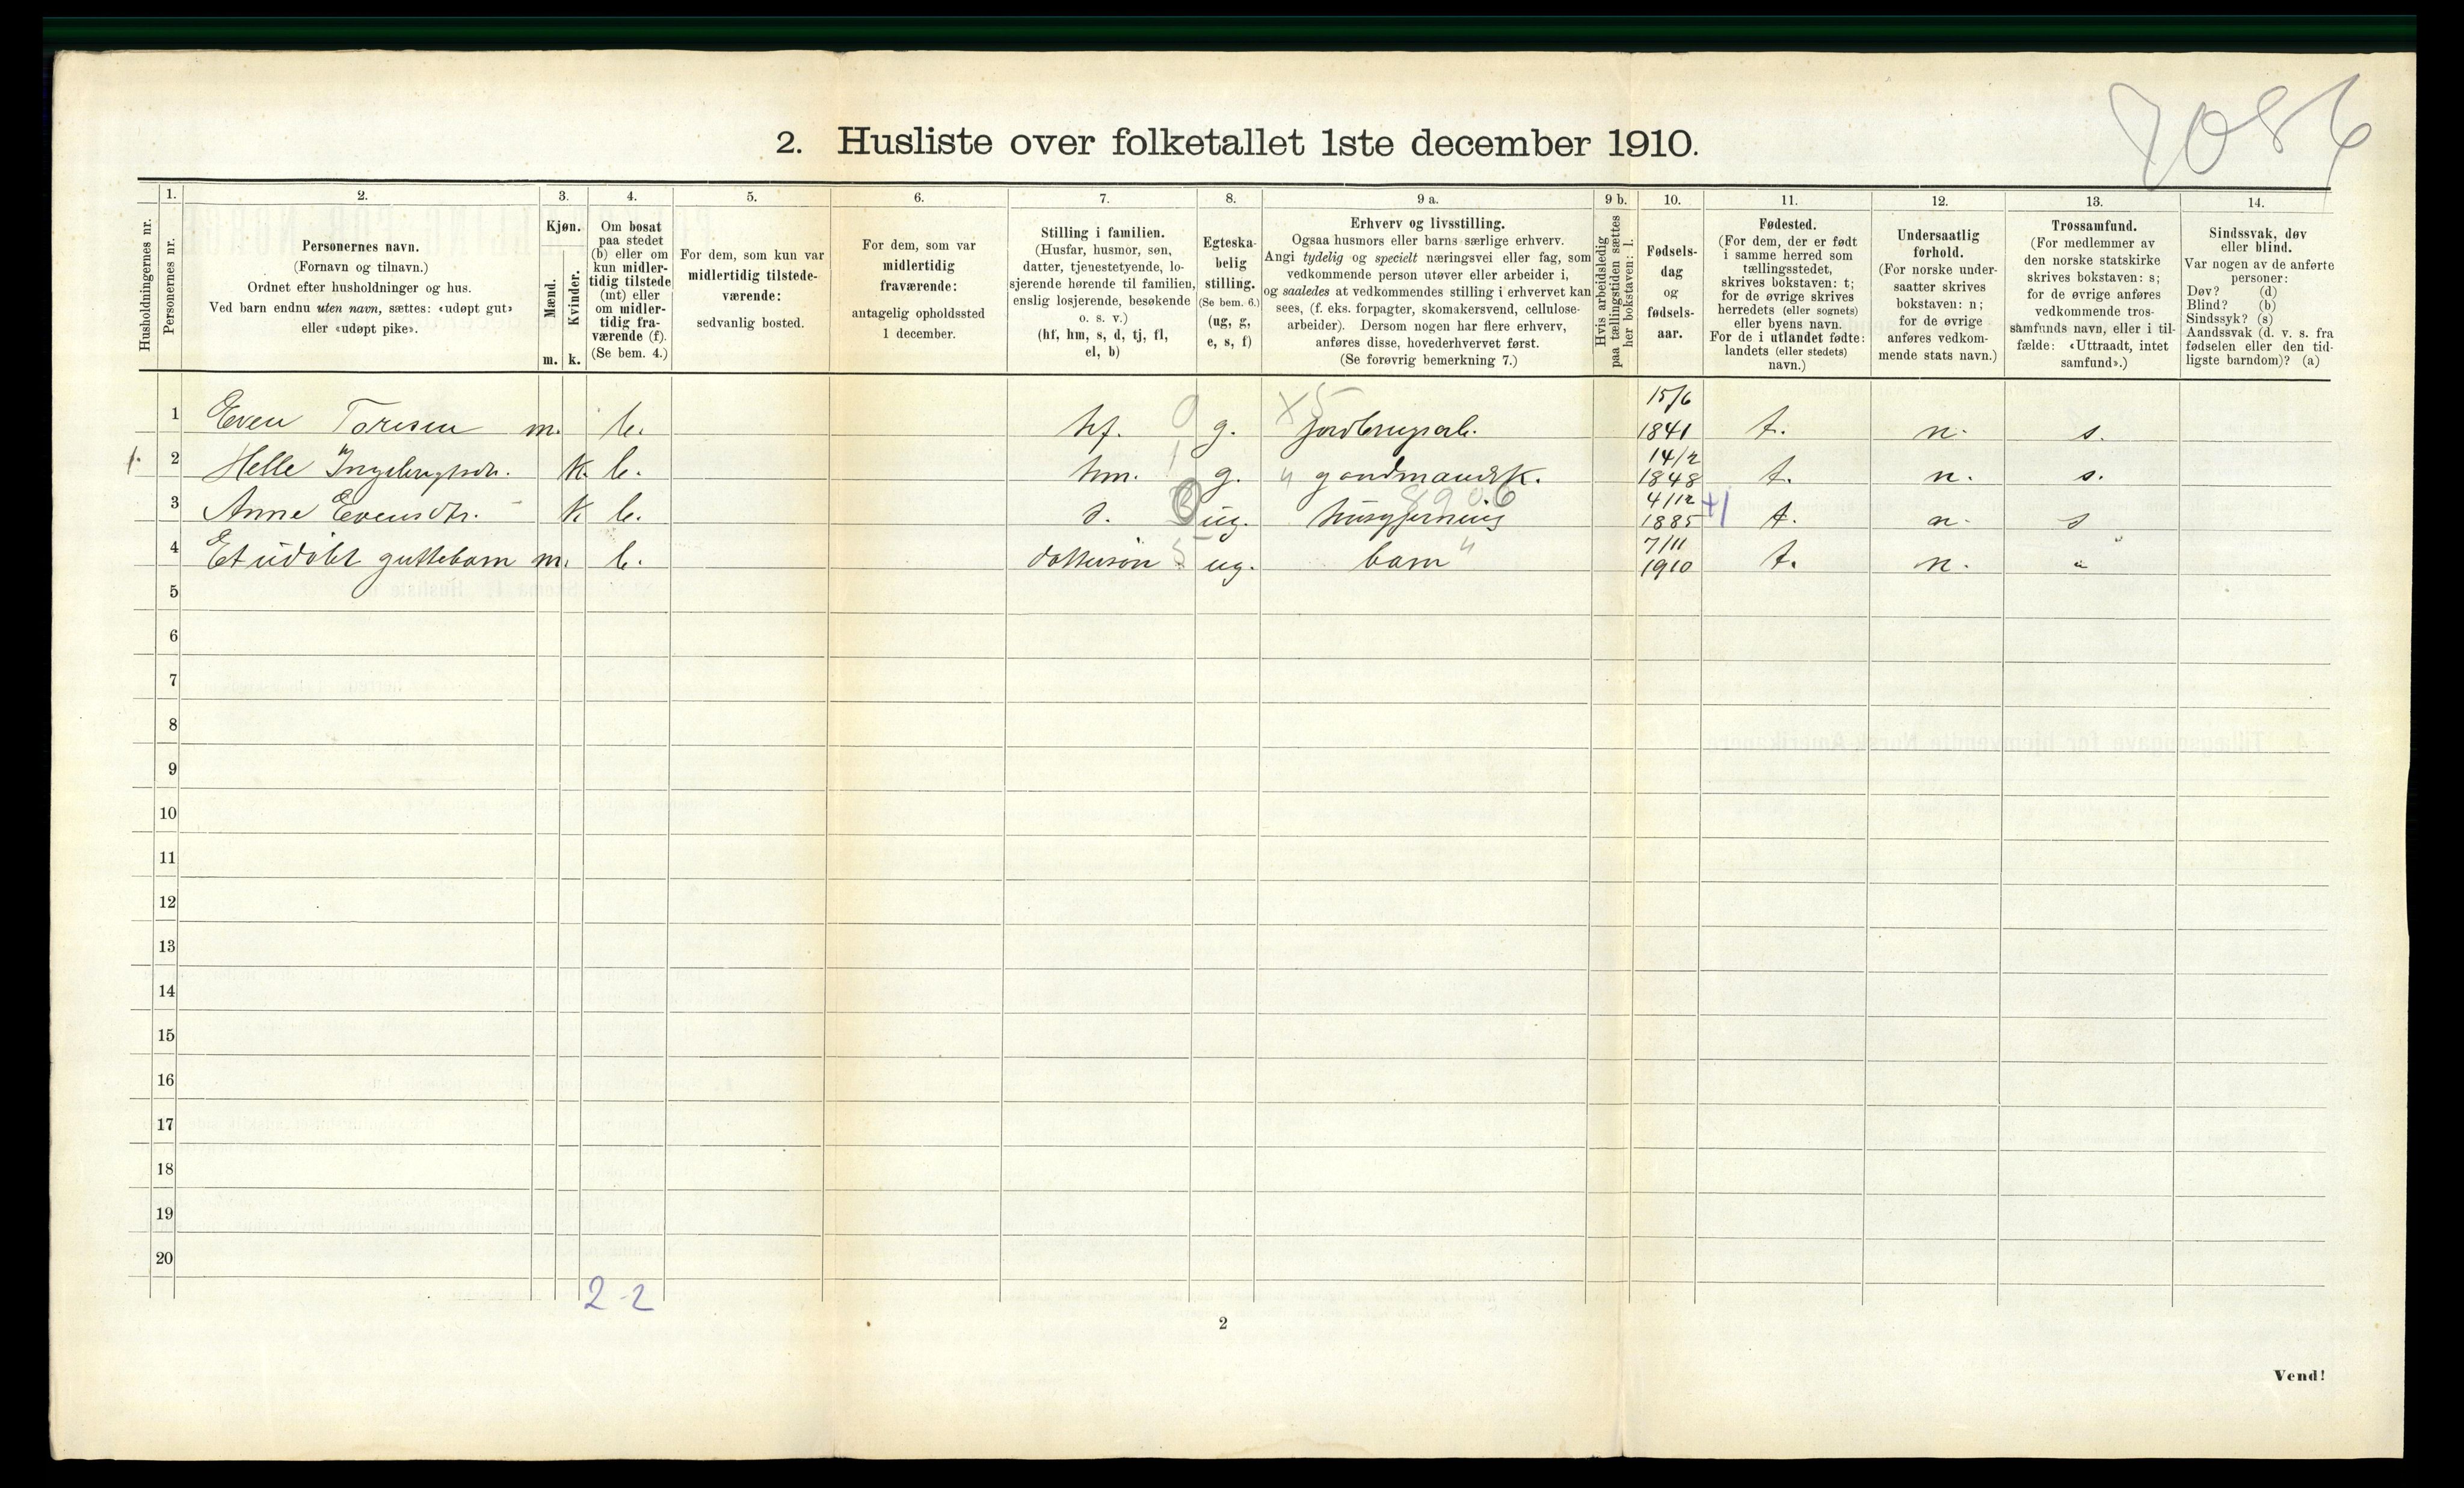 7086
2. Husliste over folketallet 1ste december 1910.
Husholdningernes nr.
1.
Personernes nr.
2.
Personernes navn.
(Fornavn og tilnavn.)
Ordnet efter husholdninger og hus.
Ved barn endnu uten navn, sættes: «udøpt gut»
eller «udøpt pike».
3.
Kjøn.
Mænd.
Kvinder.
m. k.
4.
Om bosat
paa stedet
(b) eller om
kun midler-
tidig tilstede
(mt) eller
om midler-
tidig fra-
værende (f).
(Se bem. 4.)
5.
For dem, som kun var
midlertidig tilstede-
værende:
sedvanlig bosted.
6.
For dem, som var
midlertidig
fraværende:
antagelig opholdssted
1 december.
7.
Stilling i familien.
(Husfar, husmor, søn,
datter, tjenestetyende, lo-
sjerende hørende til familien,
enslig losjerende, besøkende
o. s. v.)
(hf, hm, s, d, tj, fl,
el, b)
8.
Egteska-
belig
stilling.
(Se bem. 6.)
(ug, g,
e, s, f)
9 a.
Erhverv og livsstilling.
Ogsaa husmors eller barns særlige erhverv.
Angi tydelig og specielt næringsvei eller fag, som
vedkommende person utøver eller arbeider i,
og saaledes at vedkommendes stilling i erhvervet kan
sees, (f. eks. forpagter, skomakersvend, cellulose-
arbeider). Dersom nogen har flere erhverv,
anføres disse, hovederhvervet først.
(Se forøvrig bemerkning 7.)
9 b.
Hvis arbeidsledig
paa tællingstiden sættes
her bokstaven: l.
10.
Fødsels-
dag
og
fødsels-
aar.
11.
Fødested.
(For dem, der er født
i samme herred som
tællingsstedet,
skrives bokstaven: t;
for de øvrige skrives
herredets (eller sognets)
eller byens navn.
For de i utlandet fødte:
landets (eller stedets)
navn.)
12.
Undersaatlig
forhold.
(For norske under-
saatter skrives
bokstaven: n;
for de øvrige
anføres vedkom-
mende stats navn.)
13.
Trossamfund.
(For medlemmer av
den norske statskirke
skrives bokstaven: s;
for de øvrige anføres
vedkommende tros-
samfunds navn, eller i til-
fælde: «Uttraadt, intet
samfund».)
14.
Sindssvak, døv
eller blind.
Var nogen av de anførte
personer:
Døv? (d)
Blind? (b)
Sindssyk? (s)
Aandssvak (d. v. s. fra
fødselen eller den tid-
ligste barndom)? (a)
1 Even Toresen m. b. hf. 0 g. x5 jordbrugsarb. 15/6 1841 t. n. s.
1. 2 Helle k. b. hm. 1 g. " gaardmandsk. 14/2 1848 t. n. s.
3 Anne Evensdtr. k b. d. ug. 890.6 husgjerning 4/12 1885 +1 t. n. s
4 Et udøbt guttebarn m. b. dattersøn 5 ug. barn " 7/11 1910 t. n. "
5
6
7
8
9
10
11
12
13
14
15
16
17
18
19
20
2-2
2
Vend!